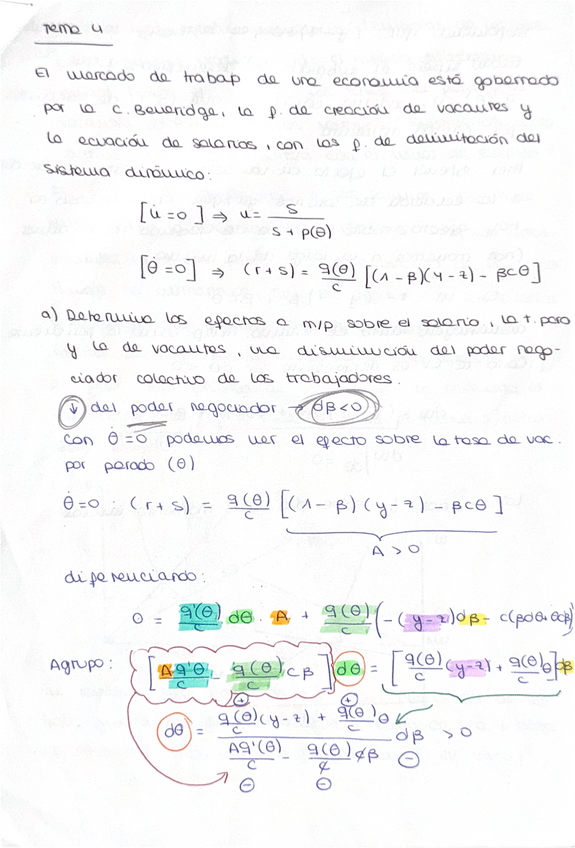 Tema 4
El mercado de trabajo de una economía está gobernado
por la c. Beveridge, la f. de creación de vacantes y
la ecuación de salarios, con las f. de delimitación del
sistema dinámico:
[u̇ = 0] ⇒ u = s / (s + p(θ))
[θ̇ = 0] ⇒ (r + s) = q(θ)/c [(1 - β)(y - z) - βcθ]
a) Determina los efectos a m/p sobre el salario, la t. paro
y la de vacantes, una disminución del poder nego-
ciador colectivo de los trabajadores.
↓ del poder negociador → dβ < 0
con θ̇ = 0 podemos ver el efecto sobre la tasa de vac.
por parado (θ)
θ̇ = 0 : (r + s) = q(θ)/c [(1 - β)(y - z) - βcθ]
A > 0
diferenciando:
0 = q'(θ)/c dθ · A + q(θ)/c (-(y - z)dβ - c(βdθ + θdβ)
Agrupo: [A q'(θ)/c - q(θ)/c cβ] dθ = [q(θ)/c (y - z) + q(θ)/c θ] dβ
⊕ ⊕
dθ = (q(θ)/c (y - z) + q(θ)/c θ) / (Aq'(θ)/c - q(θ)/c cβ) dβ > 0
⊖ ⊖ ⊖